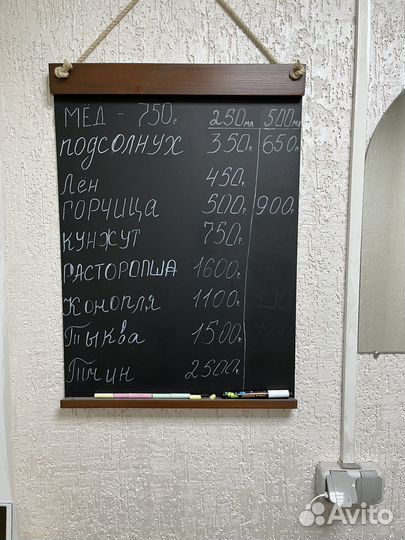 МЁД - 750г 250мл 500мл
ПОДСОЛНУХ 350г 650г
Лен 450г
ГОРЧИЦА 500г 900г
КУНЖУТ 750г
РАСТОРОПША 1600г
Конопля 1100г
Тыква 1500г
Тмин 2500г
Avito